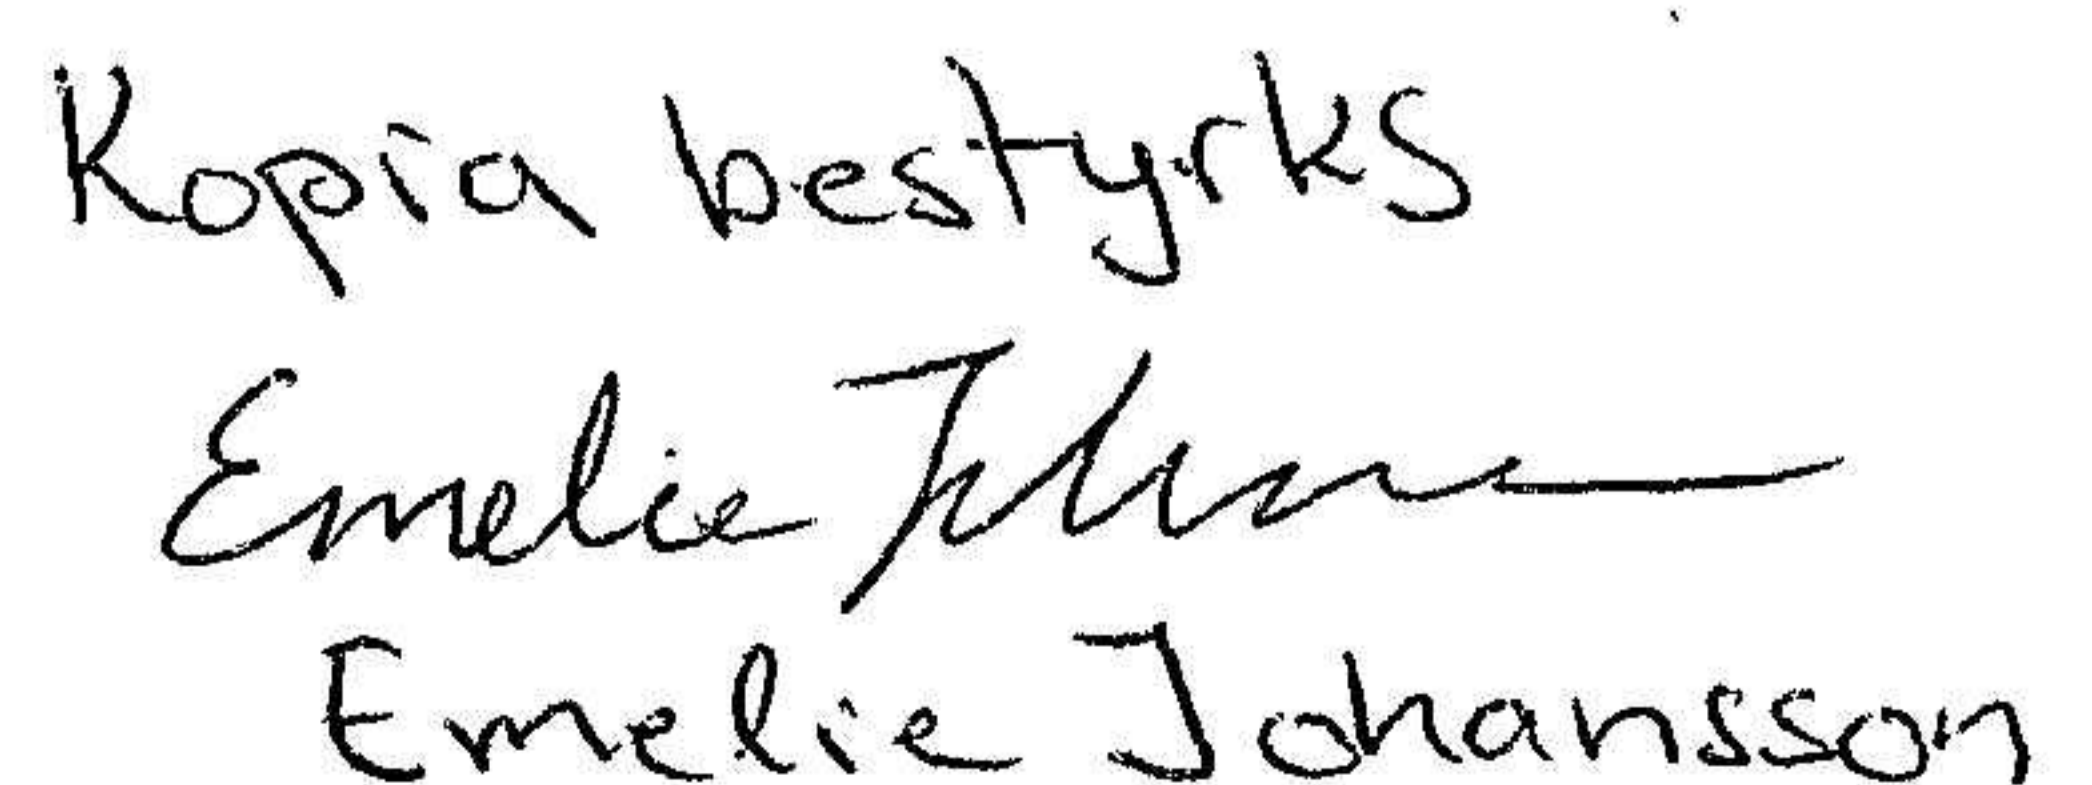 Kopia bestyrks
Emelie Joh
Emelie Johansson